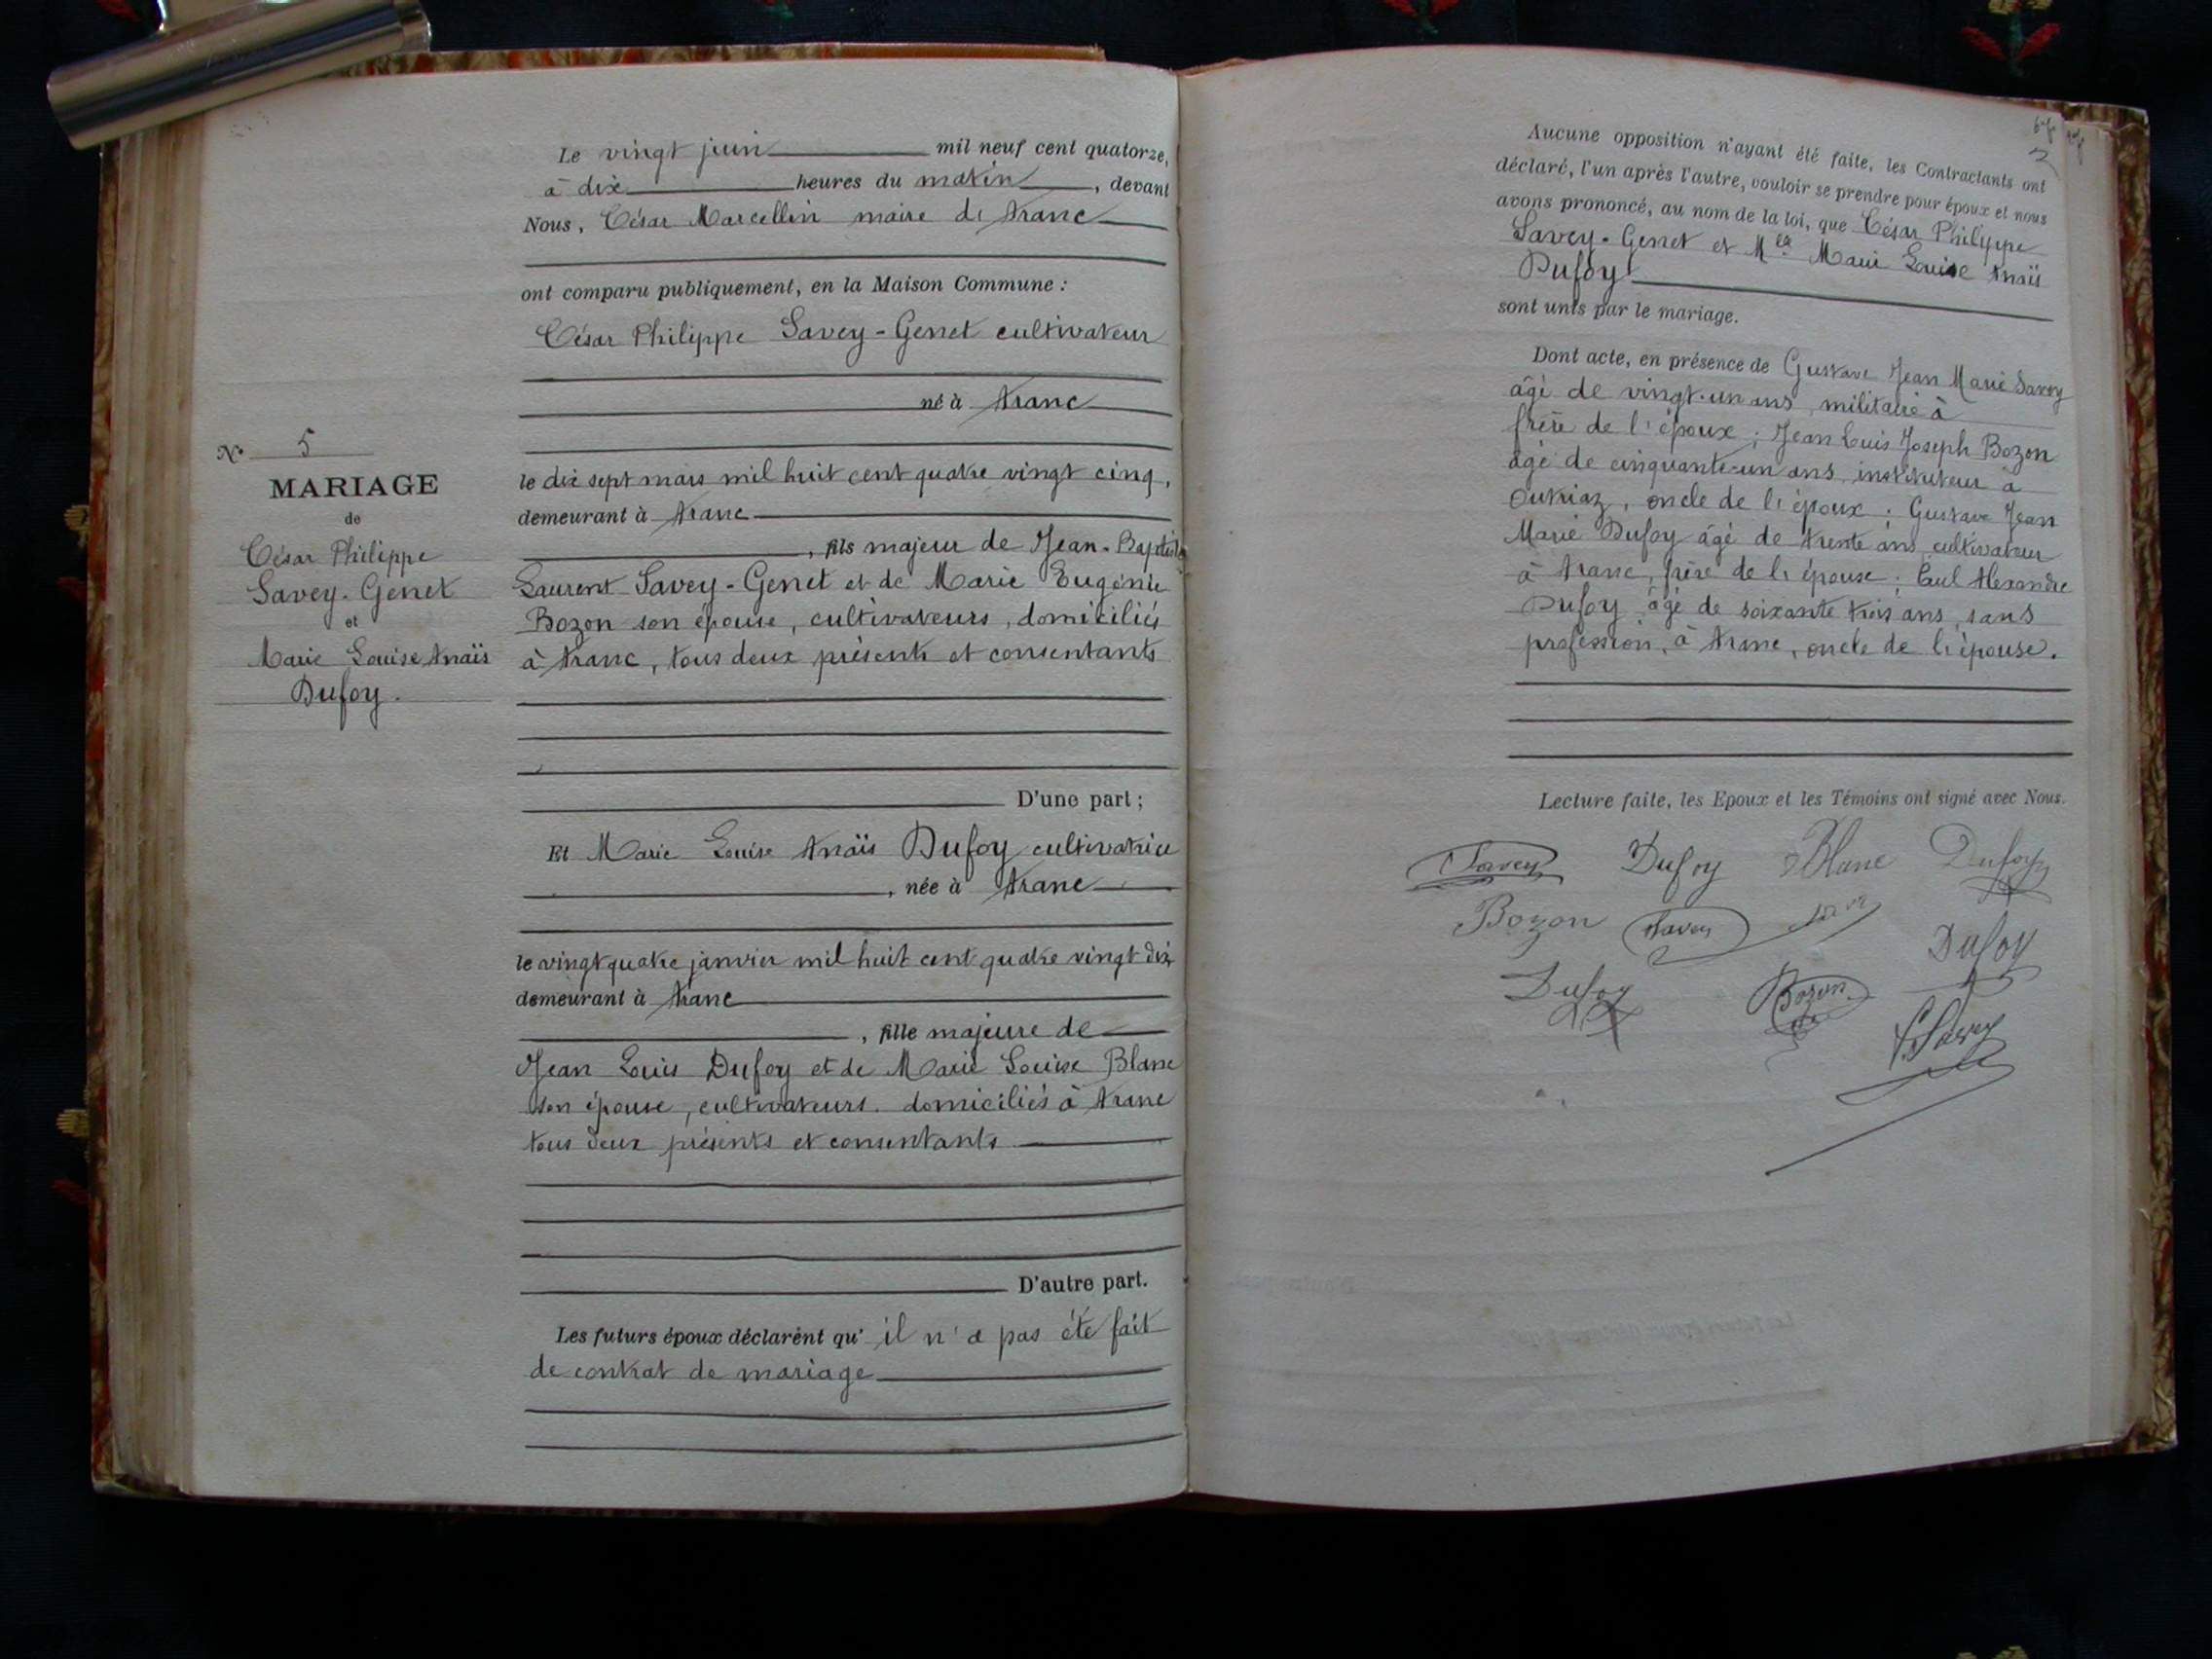 N° 5
MARIAGE
de
César Philippe
Savey-Genet
et
Marie Louise Anaïs
Dufoy.
Le vingt juin mil neuf cent quatorze,
à dix heures du matin, devant
Nous, César Marcellin maire de Aranc
ont comparu publiquement, en la Maison Commune :
César Philippe Savey-Genet cultivateur
né à Aranc
le dix sept mars mil huit cent quatre vingt cinq,
demeurant à Aranc
, fils majeur de Jean-Baptiste
Laurent Savey-Genet et de Marie Eugénie
Bozon son épouse, cultivateurs, domiciliés
à Aranc, tous deux présents et consentants
D'une part ;
Et Marie Louise Anaïs Dufoy cultivatrice
, née à Aranc
le vingt quatre janvier mil huit cent quatre vingt dix
demeurant à Aranc
, fille majeure de
Jean Louis Dufoy et de Marie Louise Blanc
son épouse, cultivateurs. domiciliés à Aranc
tous deux présents et consentants
D'autre part.
Les futurs époux déclarent qu' il n'a pas été fait
de contrat de mariage
Aucune opposition n'ayant été faite, les Contractants ont
déclaré, l'un après l'autre, vouloir se prendre pour époux et nous
avons prononcé, au nom de la loi, que César Philippe
Savey-Genet et Marie Louise Anaïs
Dufoy
sont unis par le mariage.
Dont acte, en présence de Gustave Jean Marie Savey
âgé de vingt-un ans, militaire à
frère de l'époux ; Jean Louis Joseph Bozon
âgé de cinquante-un ans, instituteur à
Outriaz, oncle de l'époux ; Gustave Jean
Marie Dufoy âgé de trente ans cultivateur
à Aranc, frère de l'épouse ; Paul Alexandre
Dufoy âgé de soixante trois ans, sans
profession, à Aranc, oncle de l'épouse.
Lecture faite, les Epoux et les Témoins ont signé avec Nous.
Savey Dufoy Blanc Dufoy
Bozon Savey
Dufoy
Dufoy Bozon
Savey